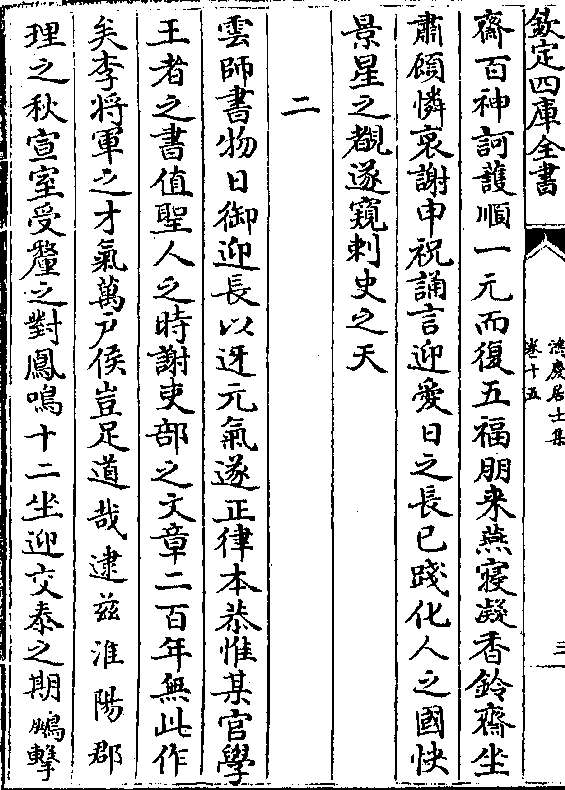 欽定四庫全書
鴻慶居士集
卷十五
三
齋百神訶護順一元而復五福朋来燕寢凝香鈴齋坐
肅頎憐衰謝申祝誦言迎愛日之長已踐化人之國快
景星之覩遂窺刺史之天
二
雲師書物日御迎長以迓元氣遂正律本恭惟某官學
王者之書值聖人之時謝吏部之文章二百年無此作
矣李將軍之才氣萬户侯豈足道哉逮兹淮陽郡
理之秋宣室受釐之對鳳鳴十二坐迎交泰之期鵬擊